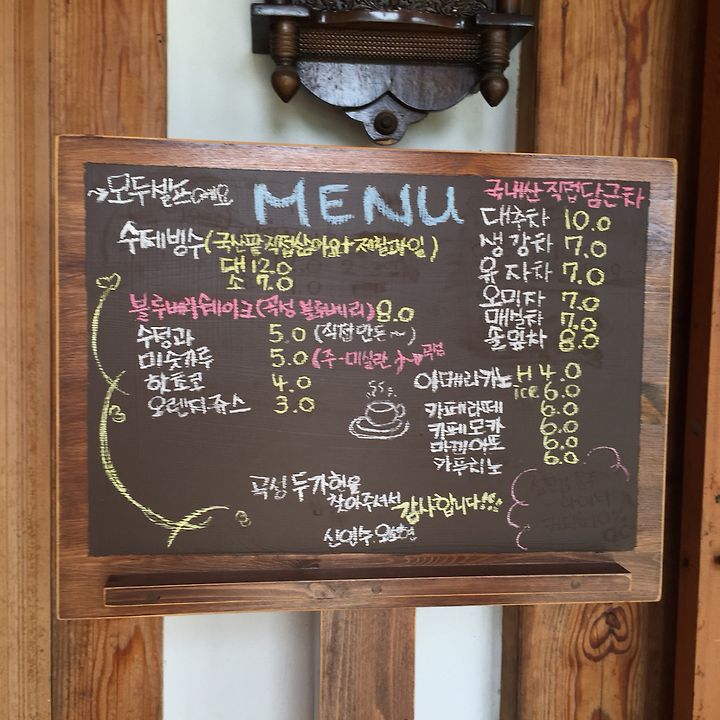 →모두셀프예요
MENU
수제빙수(국산팥직접삶아요와 제철과일)
대 12.0
소 7.0
블루베리쉐이크(곡성 블루베리) 8.0
수정과 5.0 (직접 만든~)
미숫가루 5.0 (주-미실란)→곡성
핫초코 4.0
오렌지쥬스 3.0
국내산직접담근차
대추차 10.0
생강차 7.0
유자차 7.0
오미자 7.0
매실차 7.0
솔잎차 8.0
아메리카노 H 4.0
ice 6.0
카페라떼 6.0
카페모카 6.0
마끼아또 6.0
카푸치노 6.0
곡성 두가헌을
찾아주셔서
감사합니다!!!